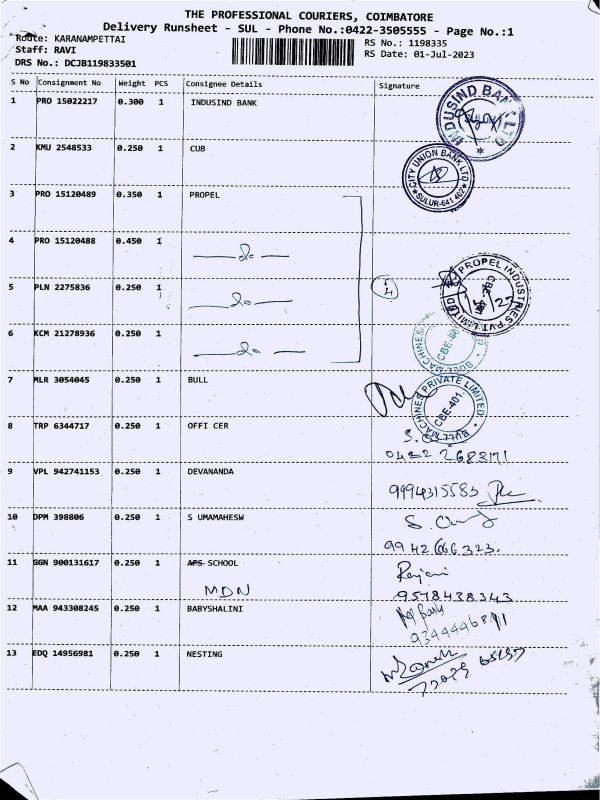 THE PROFESSIONAL COURIERS, COIMBATORE
Delivery Runsheet - SUL - Phone No.:0422-3505555 - Page No.:1
Route: KARANAMPETTAI
RS No.: 1198335
Staff: RAVI
RS Date: 01-Jul-2023
DRS No.: DCJB119833501
S No Consignment No Weight PCS Consignee Details Signature
1 PRO 15022217 0.300 1 INDUSIND BANK
INDUSIND BANK LTD
2 KMU 2548533 0.250 1 CUB
CITY UNION BANK LTD
SULUR-641 402
3 PRO 15120489 0.350 1 PROPEL
4 PRO 15120488 0.450 1
do
5 PLN 2275836 0.250 1
do
4
PROPEL INDUSTRIES PVT LIMITED
6 KCM 21278936 0.250 1
do
7 MLR 3054045 0.250 1 BULL
BULL MACHINES PRIVATE LIMITED
CBE-401
8 TRP 6344717 0.250 1 OFFI CER
0422 2683171
9 VPL 942741153 0.250 1 DEVANANDA
9994315585
10 DPM 398806 0.250 1 S UMAMAHESW
9942666323.
11 GGN 900131617 0.250 1 APS SCHOOL
MDN
Ranjani
9578438343
12 MAA 943308245 0.250 1 BABYSHALINI
13 EDQ 14956981 0.250 1 NESTING